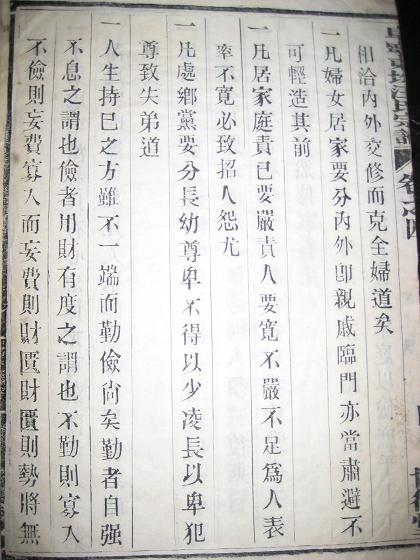 氏宗譜 卷之四
相洽内外交修而克全婦道矣
一凡婦女居家要分内外卽親戚臨門亦當肅避不
可輕造其前
一凡居家庭責己要嚴責人要寬不嚴不足為人表
率不寬必致招人怨尤
一凡處鄉黨要分長幼尊卑不得以少凌長以卑犯
尊致失弟道
一人生持己之方雖不一端而勤儉尙矣勤者自强
不息之謂也儉者用財有度之謂也不勤則寡入
不儉則妄費寡入而妄費則財匱財匱則勢將無